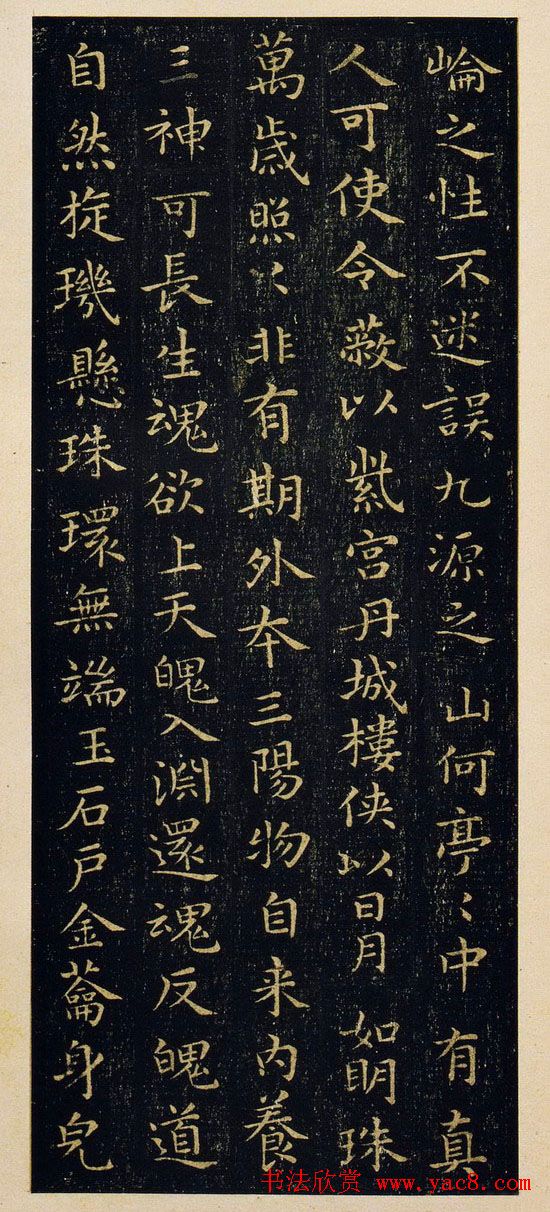 崘之性不迷誤九源之山何亭〻中有真
人可使令蔽以紫宮丹城樓俠以日月如眀珠
萬歲照〻非有期外本三陽物自来内養
三神可長生魂欲上天魄入淵還魂反魄道
自然旋璣懸珠環無端玉石戶金蘥身皃
书法欣赏 www.yac8.com